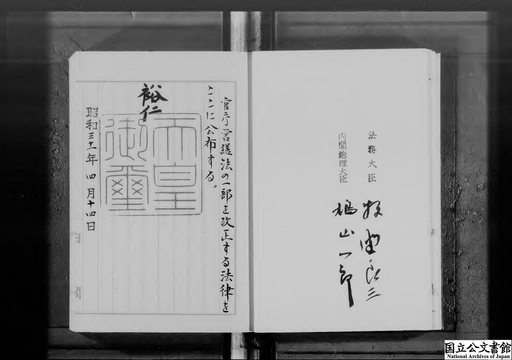 官庁営繕法の一部を改正する法律を
ここに公布する。
裕仁
天皇
御璽
昭和三十一年四月十四日
法務大臣
牧野良三
内閣総理大臣
鳩山一郎
国立公文書館
National Archives of Japan